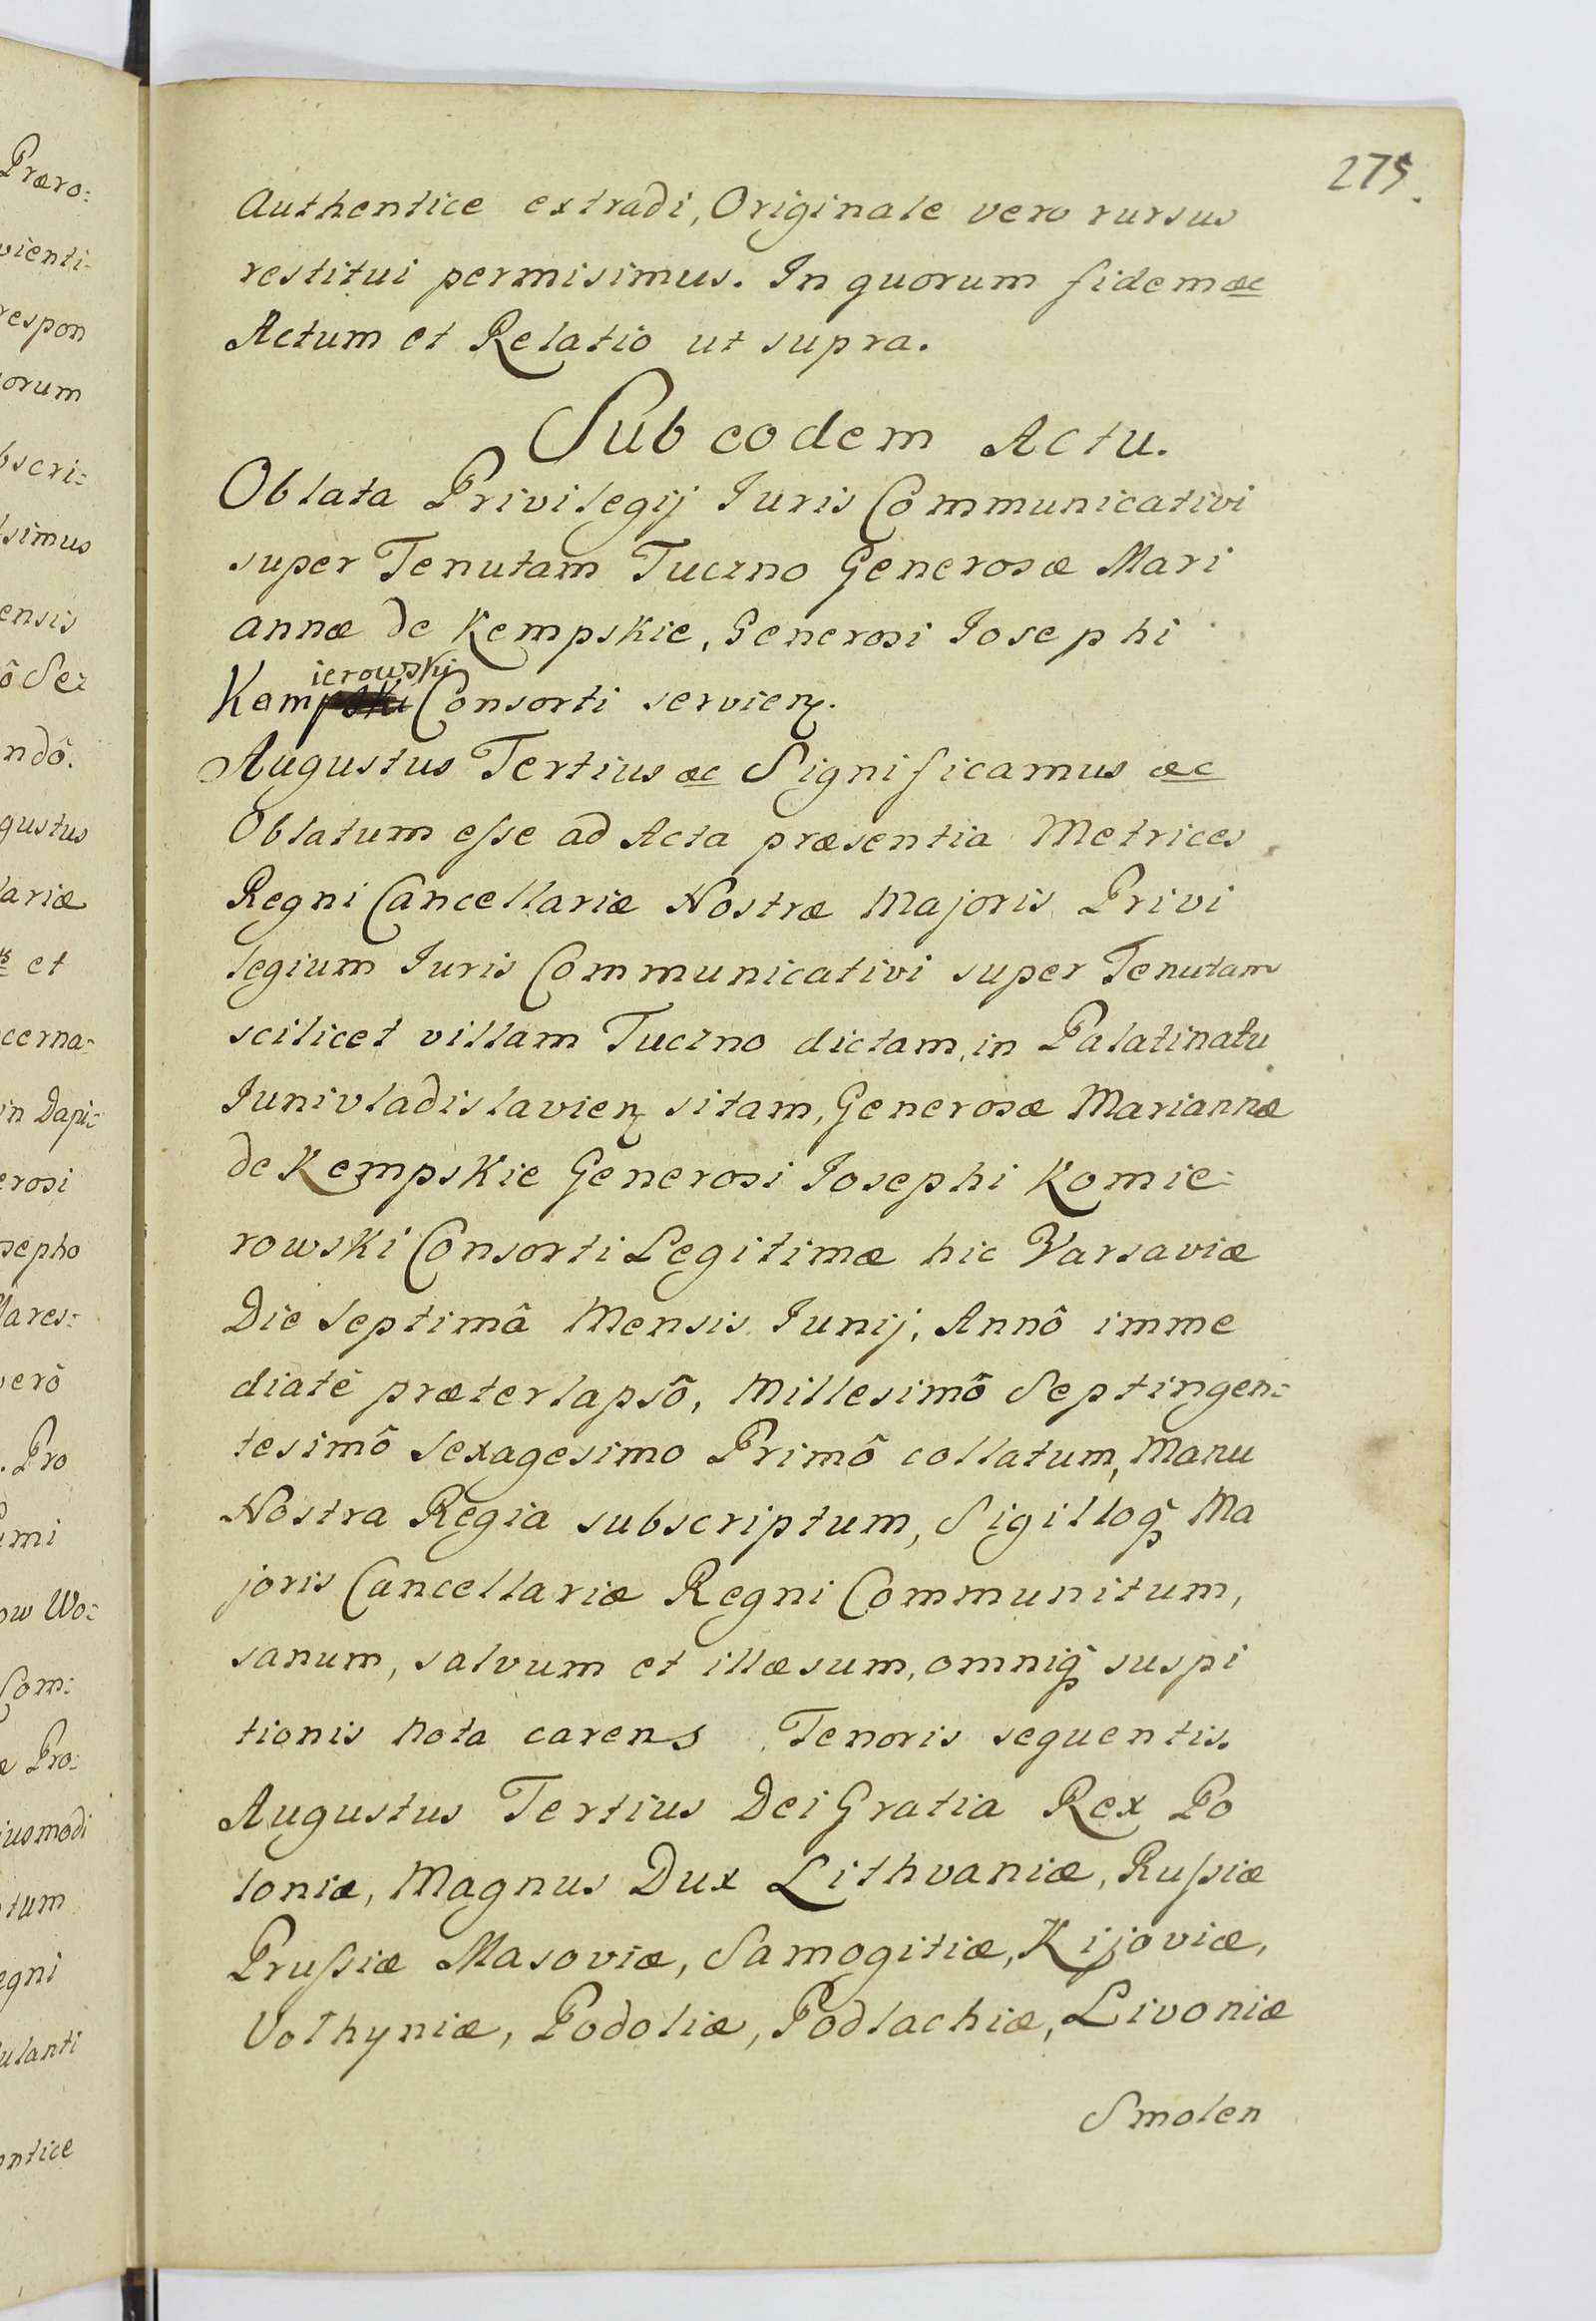 275.
Authentice extradi, Originale vero rursus
restitui permisimus. In quorum fidem æc
Actum et Relatio ut supra.
Sub eodem Actu.
Oblata Privilegij Iuris Communicativi
super Tenutam Tuczno Generosæ Mari
annæ de Kempskie, Generosi Iosephi
Komierowski Consorti servien.
Augustus Tertius æc Significamus æc
Oblatum esse ad Acta præsentia Metrices
Regni Cancellariæ Nostræ Majoris Privi
legium Iuris Communicativi super Tenutam
scilicet villam Tuczno dictam, in Palatinatu
Junivladislavien sitam, Generosæ Mariannæ
de Kempskie Generosi Iosephi Komie:
rowski Consorti Legitimæ hic Varsaviæ
Die Septimâ Mensis Iunij, Annô imme
diatê præterlapsô, Millesimô Septingen:
tesimô Sexagesimo Primô collatum, Manu
Nostra Regia subscriptum, Sigilloq̃ Ma
joris Cancellariæ Regni Communitum,
sanum, salvum et illæsum, omniq̃ suspi
tionis nota carens Tenoris sequentis.
Augustus Tertius Dei Gratia Rex Po
loniæ, Magnus Dux Lithvaniæ, Russiæ
Prussiæ Masoviæ, Samogitiæ, Kijoviæ,
Volhyniæ, Podoliæ, Podlachiæ, Livoniæ
Smolen
Præro:
vienti:
respon
orum
bscri:
simus
ensis
ô Sez
ndô.
gustus
lariæ
et
cerna:
in Dapi:
erosi
sepho
Mares:
verô
. Pro
imi
ow Wo:
Com:
æ Pro:
iusmodi
tum
egni
ulanti
entice